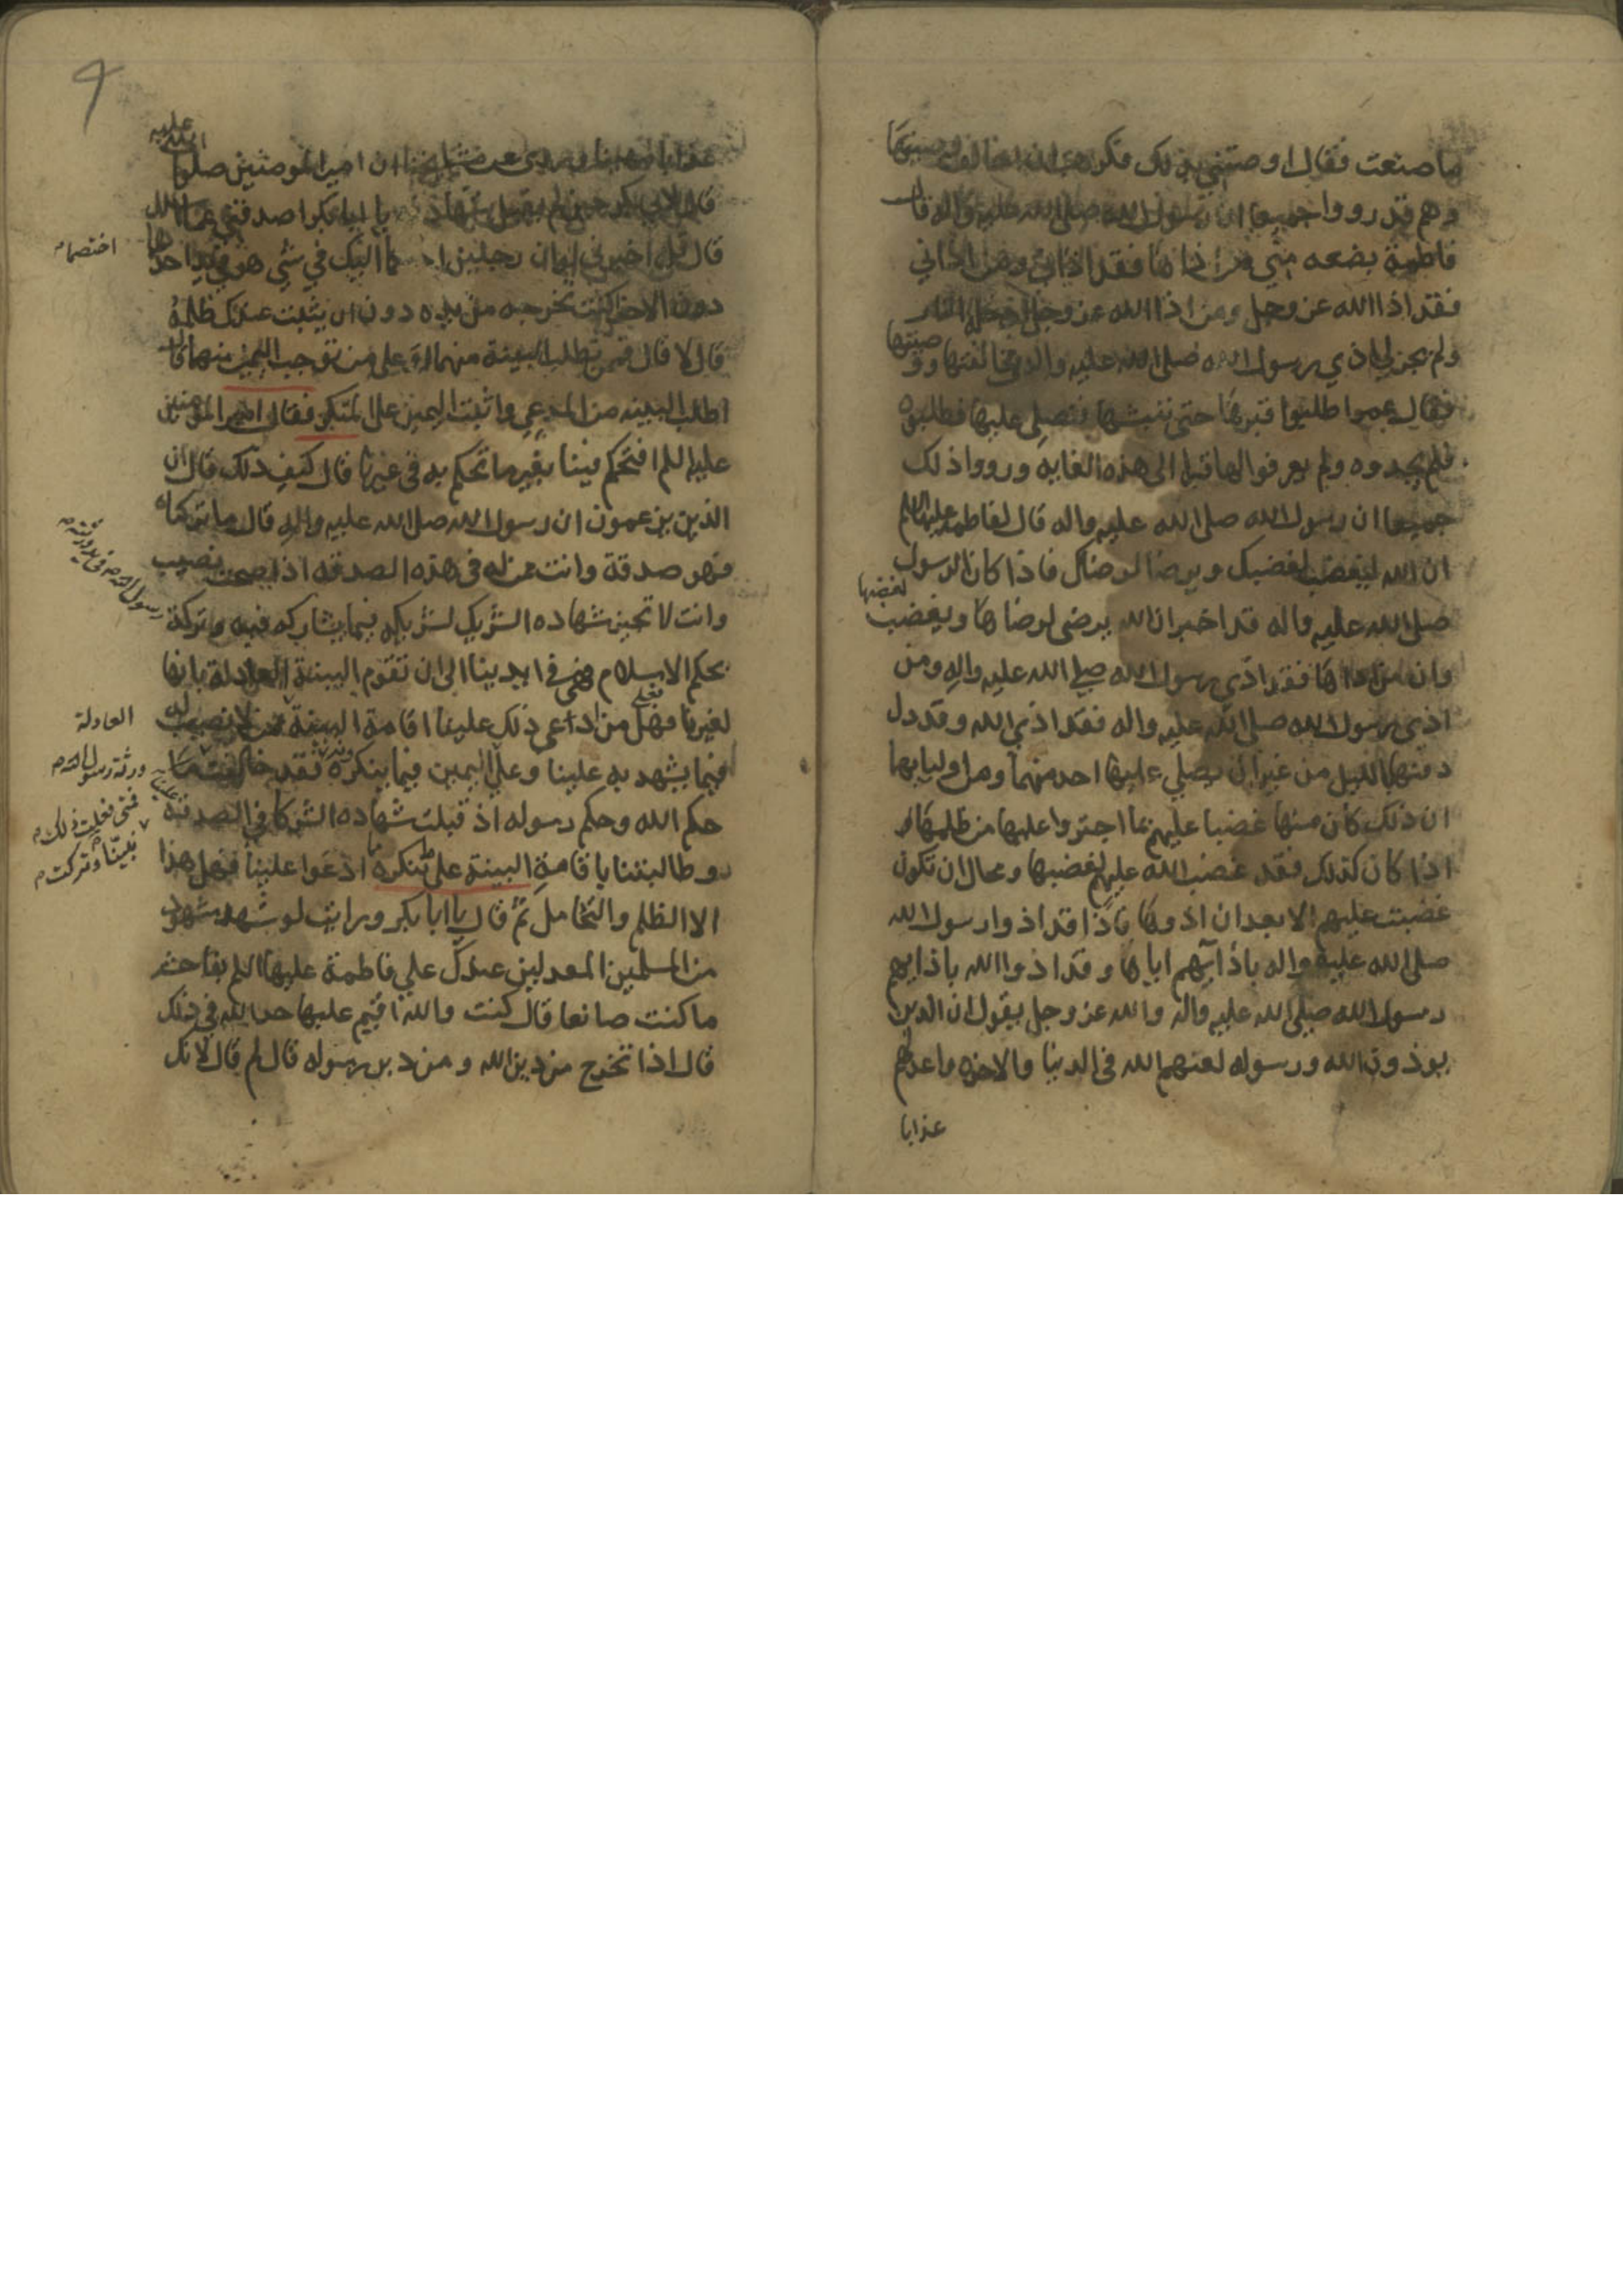 ما صنعت فقال اوصتني بذلك فكرهت ان اخالف وصيتها
وهم قد رووا جميعا ان رسول الله صلى الله عليه واله قال
فاطمة بضعه مني من اذاها فقد اذاني ومن اذاني
فقد اذا الله عز وجل ومن اذا الله عز وجل النار
ولم يجز لي اذي رسول الله صلى الله عليه واله في مخالفتها ووصيتها
فقال عمر اطلبوا قبرها حتى ننبشها فنصلي عليها فطلبوه
فلم يجدوه ولم يعرفوا لها قبرا الى هذه الغايه ورووا ذلك
جميعا ان رسول الله صلى الله عليه واله قال لفاطمه عليها السلم
ان الله ليغضب لغضبك ويرضا لرضاك فاذا كان الرسول
صلى الله عليه واله قد اخبر ان الله يرضى لرضاها ويغضب لغضبها
وان من اذاها فقد اذي رسول الله صلى الله عليه واله ومن
اذى رسول الله صلى الله عليه واله فقد اذى الله وقد دل
دفنها بالليل من غير ان يصلي عليها احد منهما ومن اوليايهما
ان ذلك كان منها غضبا عليهم بما اجتروا عليها من ظلمها
اذا كان كذلك فقد غضب الله عليهم لغضبها ومحال ان تكون
غضبت عليهم الا بعد ان اذوها فاذا قد اذوا رسول الله
صلى الله عليه واله باذايهم اياها وقد اذوا الله باذايهم
رسول الله صلى الله عليه واله والله عز وجل يقول ان الذين
يوذون الله ورسوله لعنهم الله في الدنيا والاخره واعد لهم
عذابا
٩
عذابا مهينا مشايخنا ان امير المومنين صلوات الله عليه
قال لابي بكر حين لم يقبل شهادة يا ابا بكر اصدقني عما اسالك
قال قل اخبرني لو ان رجلين اليك في شي هو في يد احدهما
اختصما
دون الاخر اكنت تخرجه من يده دون ان يثبت عندك ظلمه
قال لا قال فممن تطلب البينة منهما او على من توجب اليمين منهما قال
اطلب البينه من المدعي واثبت اليمين على المنكر فقال امير المومنين
عليه السلم افتحكم فينا بغير ما تحكم به في غيرنا قال كيف ذلك قال ان
الذين يزعمون ان رسول الله صلى الله عليه واله قال ما تركناه
فهو صدقة وانت ممن له في هذه الصدقه اذا صحت نصيب
وانت لا تجيز شهاده الشريك لشريكه فيما يشاركه فيه وتركة
رسول الله
بحكم الاسلام في ايدينا الى ان تقوم البينة العادلة بانها
لغيرنا فعلى من ادعى ذلك علينا اقامة البينة ممن لا نصيب له
العادلة
فيما يشهد به علينا وعلينا اليمين فيما ينكره فقد خالفت
ورثة رسول الله
حكم الله وحكم رسوله اذ قبلت شهاده الشركا في الصدقة
فمتى فعلت ذلك
وطالبتنا باقامة البينة على ما ننكره ادعوا علينا فهل هذا
فينا وتركت
الا الظلم والتحامل ثم قال يا ابا بكر ورايت لو شهد شهود
من المسلمين المعدلين عندك على فاطمة عليها السلم بفاحشة
ما كنت صانعا قال كنت والله اقيم عليها حد الله في ذلك
قال اذا تخرج من دين الله ومن دين رسوله قال لم قال لانك